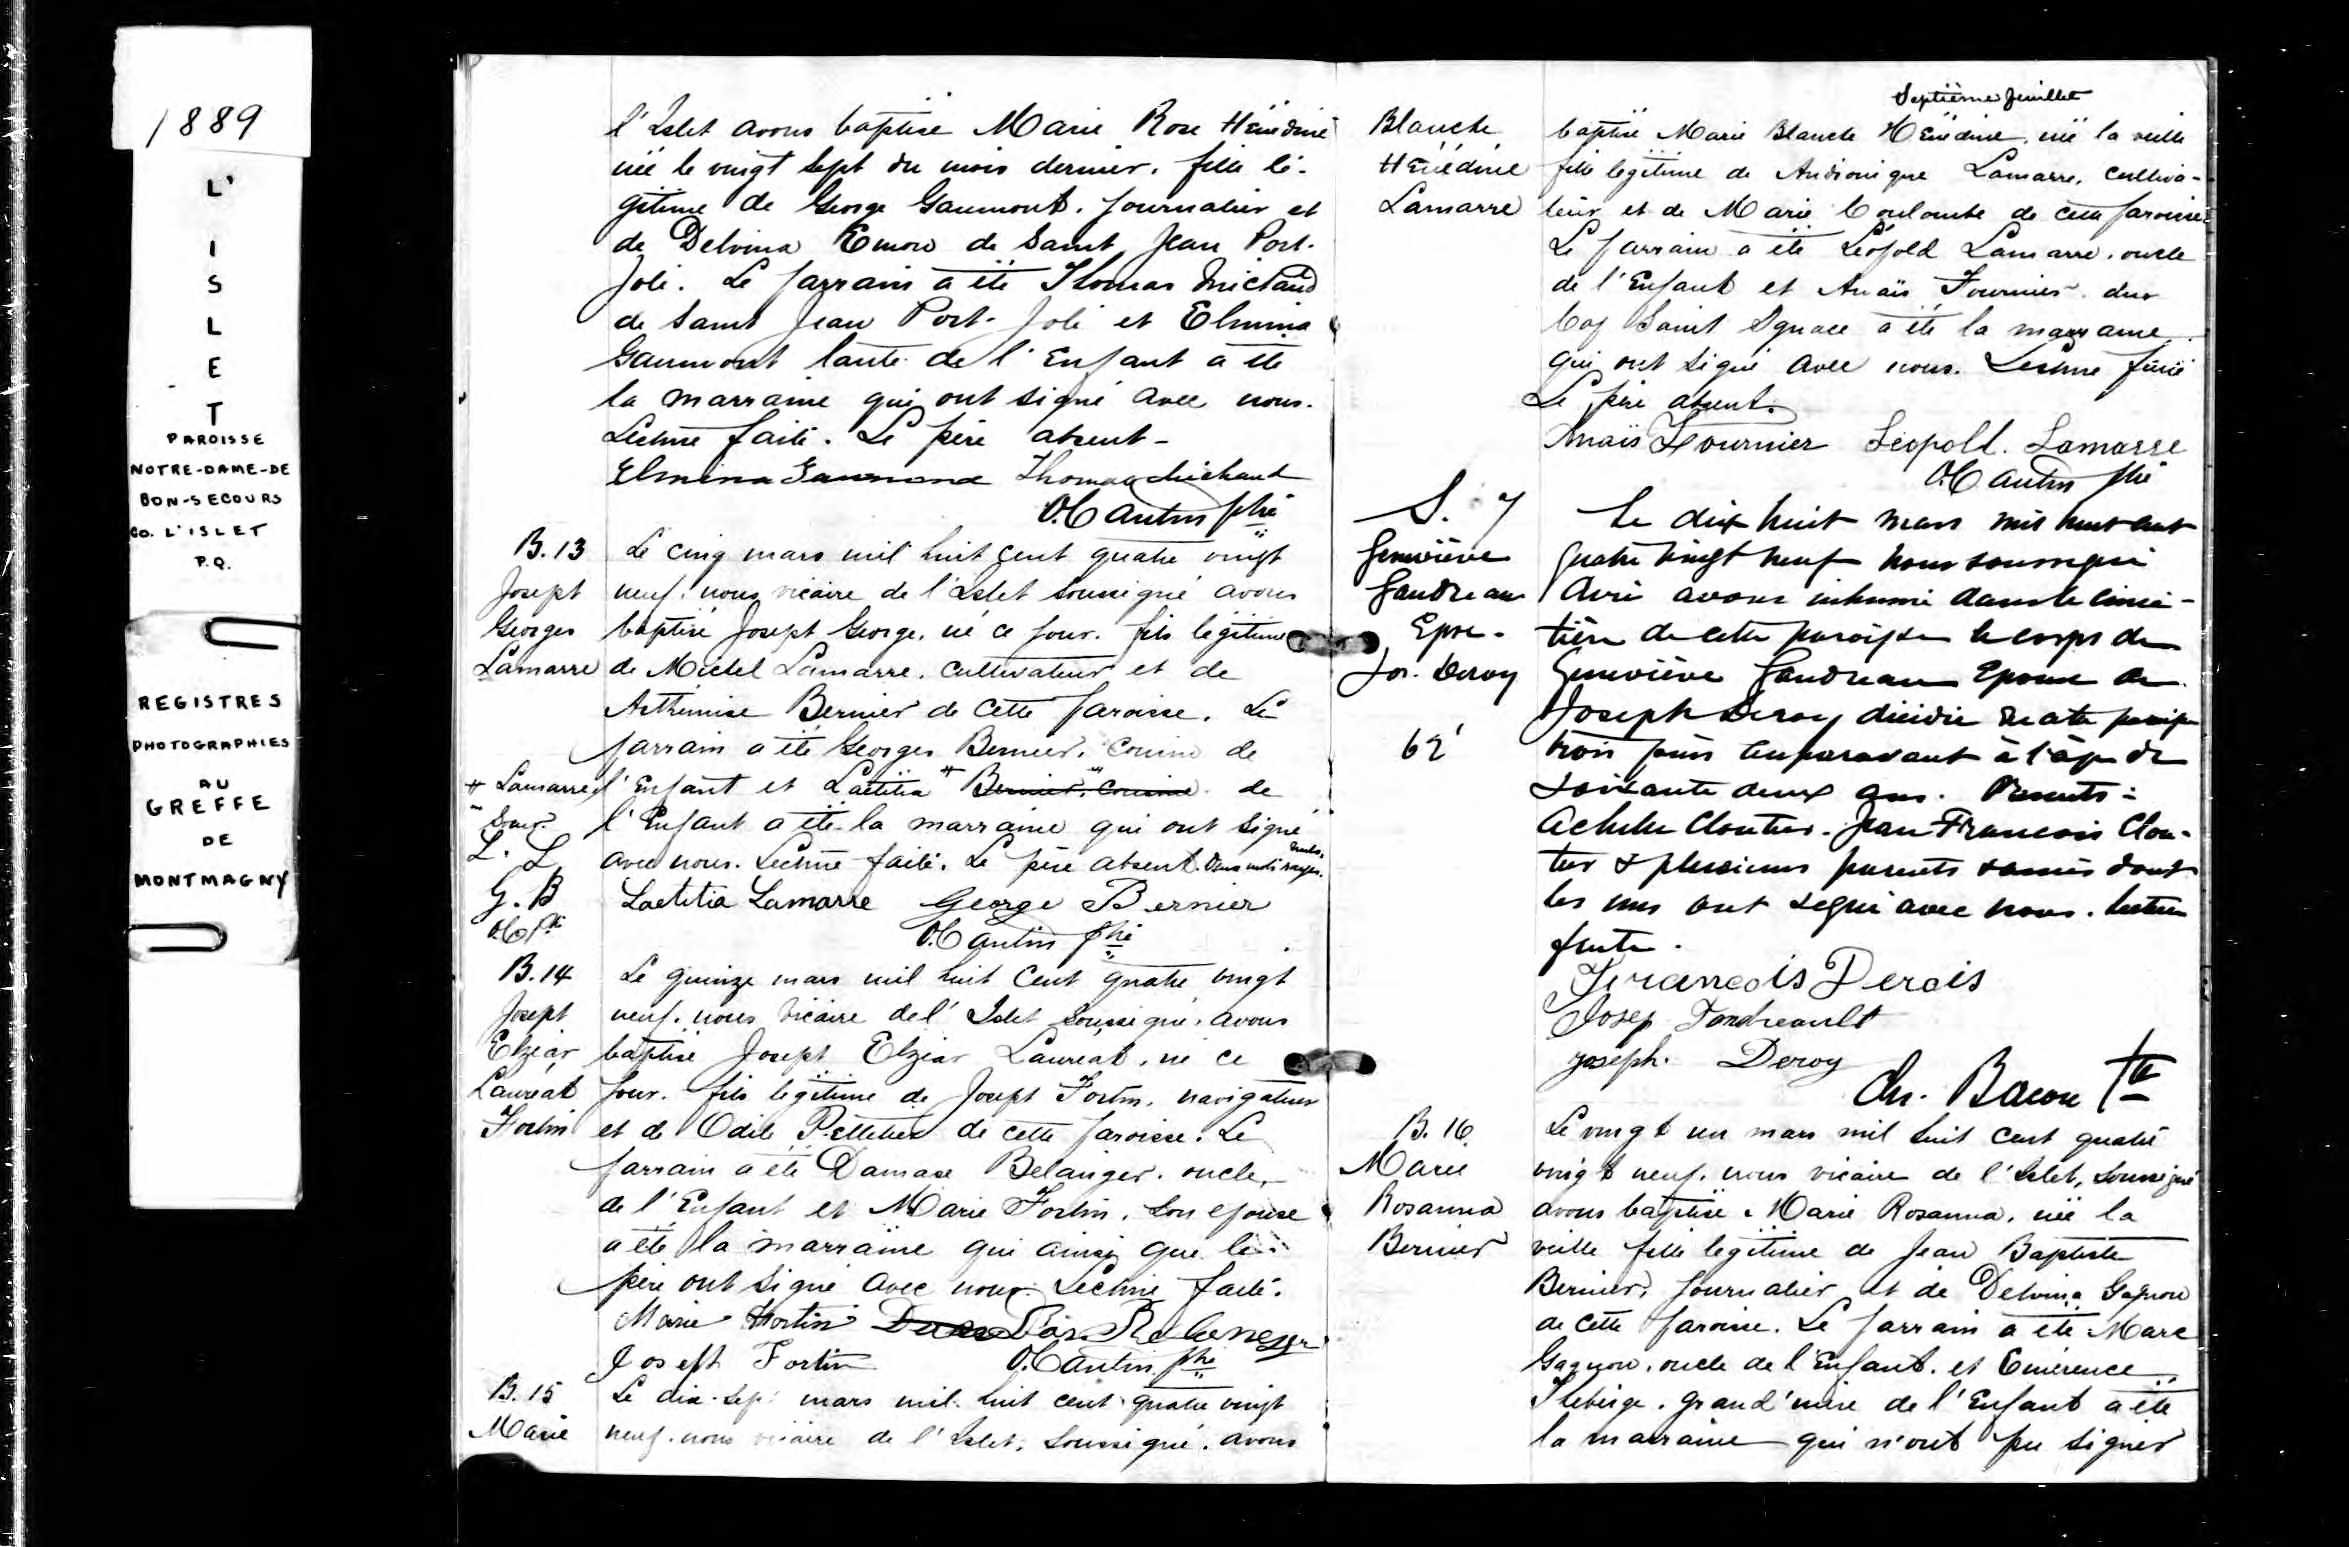 1889
L'
I
S
L
E
T
PAROISSE
NOTRE-DAME-DE
BON-SECOURS
CO. L'ISLET
P.Q.
REGISTRES
PHOTOGRAPHIES
AU
GREFFE
DE
MONTMAGNY
l'Islet avons baptisé Marie Rose Hénédine
née le vingt sept du mois dernier, fille lé-
gitime de George Gaumont, journalier et
de Delvina Emon de Saint Jean Port-
Joli. Le parrain a été Thomas Michaud
de Saint Jean Port-Joli et Elmina
Gaumont tante de l'Enfant a été
la marraine qui ont signé avec nous.
Lecture faite. Le père absent-
Elmina Gaumond Thomas Michaud
O. Cantin ptre
B.13 Le cinq mars mil huit cent quatre vingt
Joseph neuf, nous vicaire de l'Islet soussigné avons
Georges baptisé Joseph George, né ce jour, fils légitime
Lamarre de Michel Lamarre, cultivateur et de
Arthémise Bernier de cette paroisse. Le
parrain a été Georges Bernier, cousin de
# Lamarre l'Enfant et Laëtitia # Bernier, cousine de
" Soeur l'Enfant a été la marraine qui ont signé
L. L. avec nous. Lecture faite. Le père absent. Deux mots rayés nuls.
G. B Laetitia Lamarre George Bernier
O.C. Ptre O. Cantin ptre
B.14 Le quinze mars mil huit cent quatre vingt
Joseph neuf, nous vicaire de l'Islet soussigné, avons
Elzéar baptisé Joseph Elzéar Lauréat, né ce
Lauréat jour, fils légitime de Joseph Fortin, navigateur
Fortin et de Odile Pelletier de cette paroisse. Le
parrain a été Damase Belanger, oncle,
de l'Enfant et Marie Fortin, son épouse
a été la marraine qui ainsi que le
père ont signé avec nous. Lecture faite.
Marie Fortin Belanger
Joseph Fortin O. Cantin ptre
B.15 Le dix-sept mars mil huit cent quatre vingt
Marie neuf, nous vicaire de l'Islet, soussigné, avons
Septième feuillet
Blanche baptisé Marie Blanche Hénédine, née la veille
Hénédine fille légitime de Andronique Lamarre, cultiva-
Lamarre teur et de Marie Coulombe de cette paroisse.
Le parrain a été Léopold Lamarre, oncle
de l'Enfant et Anaïs Fournier du
Cap Saint Ignace a été la marraine
qui ont signé avec nous. Lecture faite
Le père absent.
Anaïs Fournier Léopold. Lamarre
O. Cantin ptre
S. 7 Le dix huit mars mil huit cent
Geneviève quatre vingt neuf nous soussigné
Gaudreau Curé avons inhumé dans le cime-
Epse. tière de cette paroisse le corps de
Jos. Deroy Geneviève Gaudreau Epouse de
Joseph Deroy décédée en cette paroisse
62 trois jours auparavant à l'âge de
soixante deux ans. Présents:
Achille Cloutier. Jean François Clou-
tier & plusieurs parents & amis dont
les uns ont signé avec nous. Lecture
faite.
Francois Derois
Josep Gandreault
Joseph. Deroy
Ch. Bacon Ptre
B.16 Le vingt un mars mil huit cent quatre
Marie vingt neuf, nous vicaire de l'Islet, soussigné
Rosanna avons baptisé Marie Rosanna, née la
Bernier veille fille légitime de Jean Baptiste
Bernier, journalier et de Delvina Gagnon
de cette paroisse. Le parrain a été Marc
Gagnon, oncle de l'Enfant, et Emérence
Theberge, grand'mère de l'Enfant a été
la marraine qui n'ont pu signer